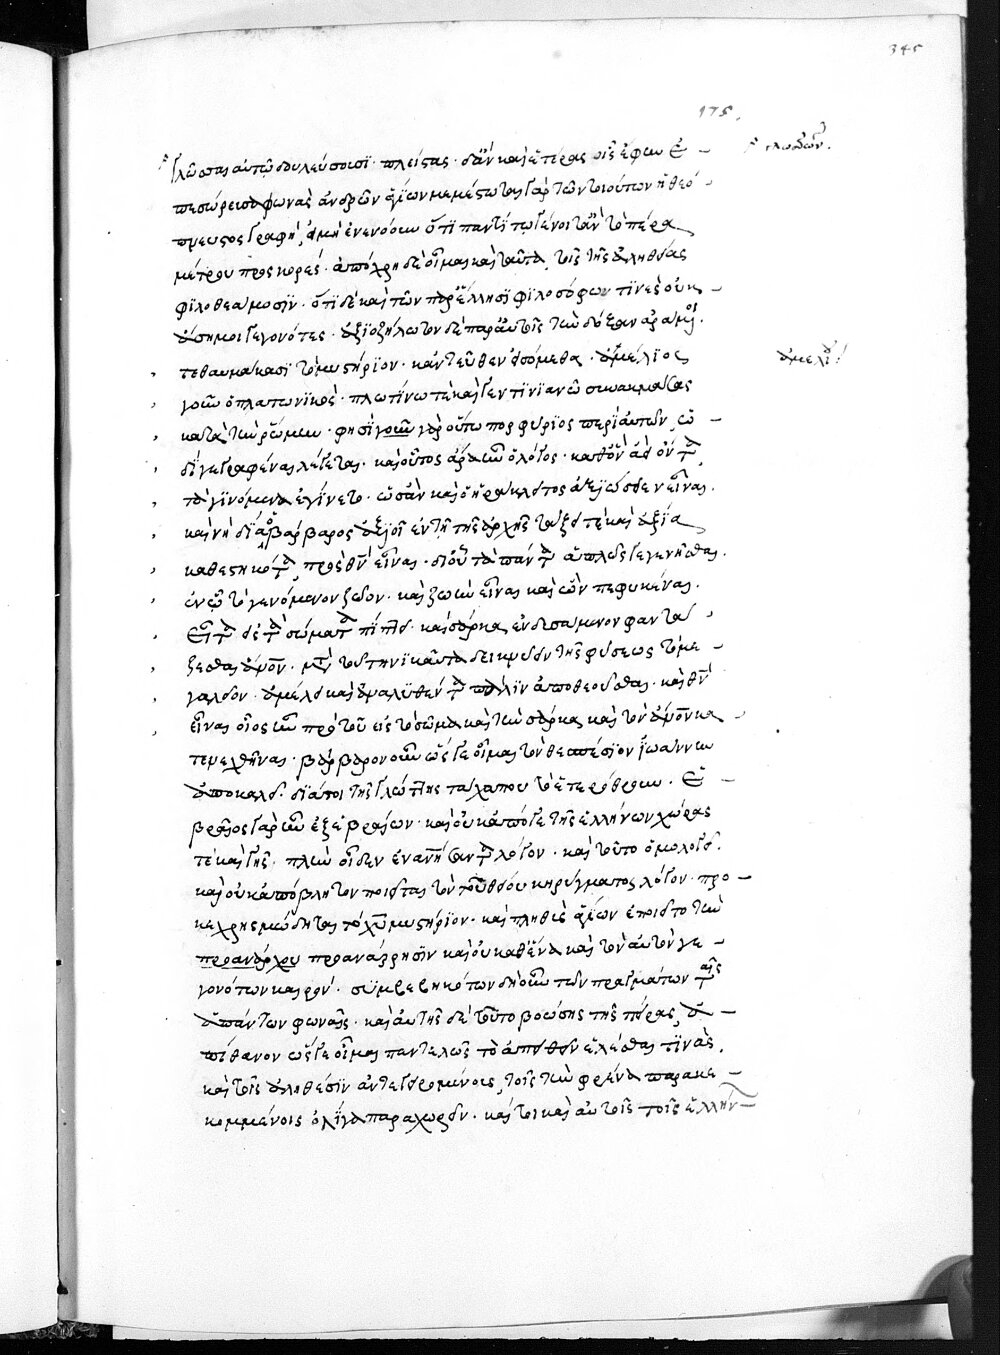 345
175.
γλώσσαις αὐτῶ δουλεύσουσι πλείστας. δι' ὧν καὶ ἑτέραις οἷς ἔφην ἐ-
πεσώρευσα φωνὰς ἀνδρῶν ἁγίων μεμέστωται γὰρ τῶν τοιούτων ἡ θεό-
πνευστος γραφή, εἰ μὴ ἐνενόουν ὅτι παντί πω γένοιτ' ἂν τὸ πέρα
μέτρου προσκορές. ἀπόχρη δὲ οἶμαι καὶ ταῦτα τοῖς τῆς ἀληθείας
φιλοθεάμοσιν. ὅτι δὲ καὶ τῶν παρ' ἕλλησι φιλοσόφων τινὲς οὐκ
ἄσημοι γεγονότες. ἀξιοζήλωτον δὲ παρ' αὐτοῖς τὴν δόξαν ἀράμενοι.
τεθαυμάκασι τὸ μυστήριον. κἀντεῦθεν εἰσόμεθα. ἀμέλιος
γοῦν ὁ πλατωνικὸς. πλωτίνω τε καὶ γεντινιανῶ συνακμάσας
κατὰ τὴν ῥώμην. φησὶ γοῦν γὰρ οὕτω πορφύριος περὶ αὐτῶν ὧ
δι γεγραφέναι λέγεται. καὶ οὗτος ἄρα ἦν ὁ λόγος. καθ' ὃν ἀεὶ ὄντα
τὰ γινόμενα ἐγίνετο. ὡς ἂν καὶ ὁ ἡράκλειτος ἀξιώσειεν εἶναι.
καὶ νὴ δι' ὃν ὁ βάρβαρος ἀξιοῖ ἐν τῆ τῆς ἀρχῆς τάξει τε καὶ ἀξία
καθεστηκότα πρὸς θν εἶναι. δι' οὗ τὰ πάντα ἁπλῶς γεγενῆσθαι.
ἐν ὧ τὸ γενόμενον ζῶον. καὶ ζωὴν εἶναι καὶ ὂν πεφυκέναι.
εἶτα δὲ τὰ σώματα πίπτει. καὶ σάρκα ἐνδυσάμενον φαντά
ζεσθαι ἄνον. μετὰ τοῦ τηνικαῦτα δεικνύειν τῆς φύσεως τὸ με-
γαλεῖον. ἀμέλει καὶ ἀναλυθέντα πάλιν ἀποθεοῦσθαι. καὶ θν
εἶναι οἷος ἦν πρὸ τοῦ εἰς τὸ σῶμα καὶ τὴν σάρκα καὶ τὸν ἄνον κα-
τενεχθῆναι. βάρβαρον οὖν ὥς γε οἶμαι τὸν θεσπέσιον ἰωάννην
ἀποκαλεῖ. διά τοι τῆς γλώττης τάχα που τὸ ἑτερόθρουν. ἑ-
βραῖος γὰρ ἦν ἐξ ἑβραίων. καὶ οὐκ ἀπό γε τῆς ἑλλήνων χώρας
τε καὶ γῆς. πλὴν οἶδεν ἐνανθρωπήσαντα λόγον. καὶ τοῦτο ὁμολογεῖ.
καὶ οὐκ ἀπόβλητον ποιεῖται τὸν τοῦ θείου κηρύγματος λόγον. προ-
κεχρησμώδηται τὸ χῦ μυστήριον. καὶ πληθὺς ἁγίων ἐποιεῖτο τὴν
προανάρχου προανάρρησιν καὶ οὐ καθ' ἕνα καὶ τὸν αὐτὸν γε-
γονότων καιρόν. συμβεβηκότων δὴ οὖν τῶν πραγμάτων ταῖς
ἁπάντων φωναῖς. καὶ αὐτῆς δὲ τοῦτο βοώσης τῆς πείρας, ἀ-
πίθανον ὥς γε οἶμαι παντελῶς τὸ ἀπειθεῖν ἑλέσθαι τινὰς.
καὶ τοῖς ἀληθέσιν ἀντεγειρομένοις, τοῖς τὴν φρένα παρακε-
κομμένοις ὀλίγα παραχωρεῖν. καίτοι καὶ αὐτοῖς τοῖς ἑλλήν-
ἀμέλι